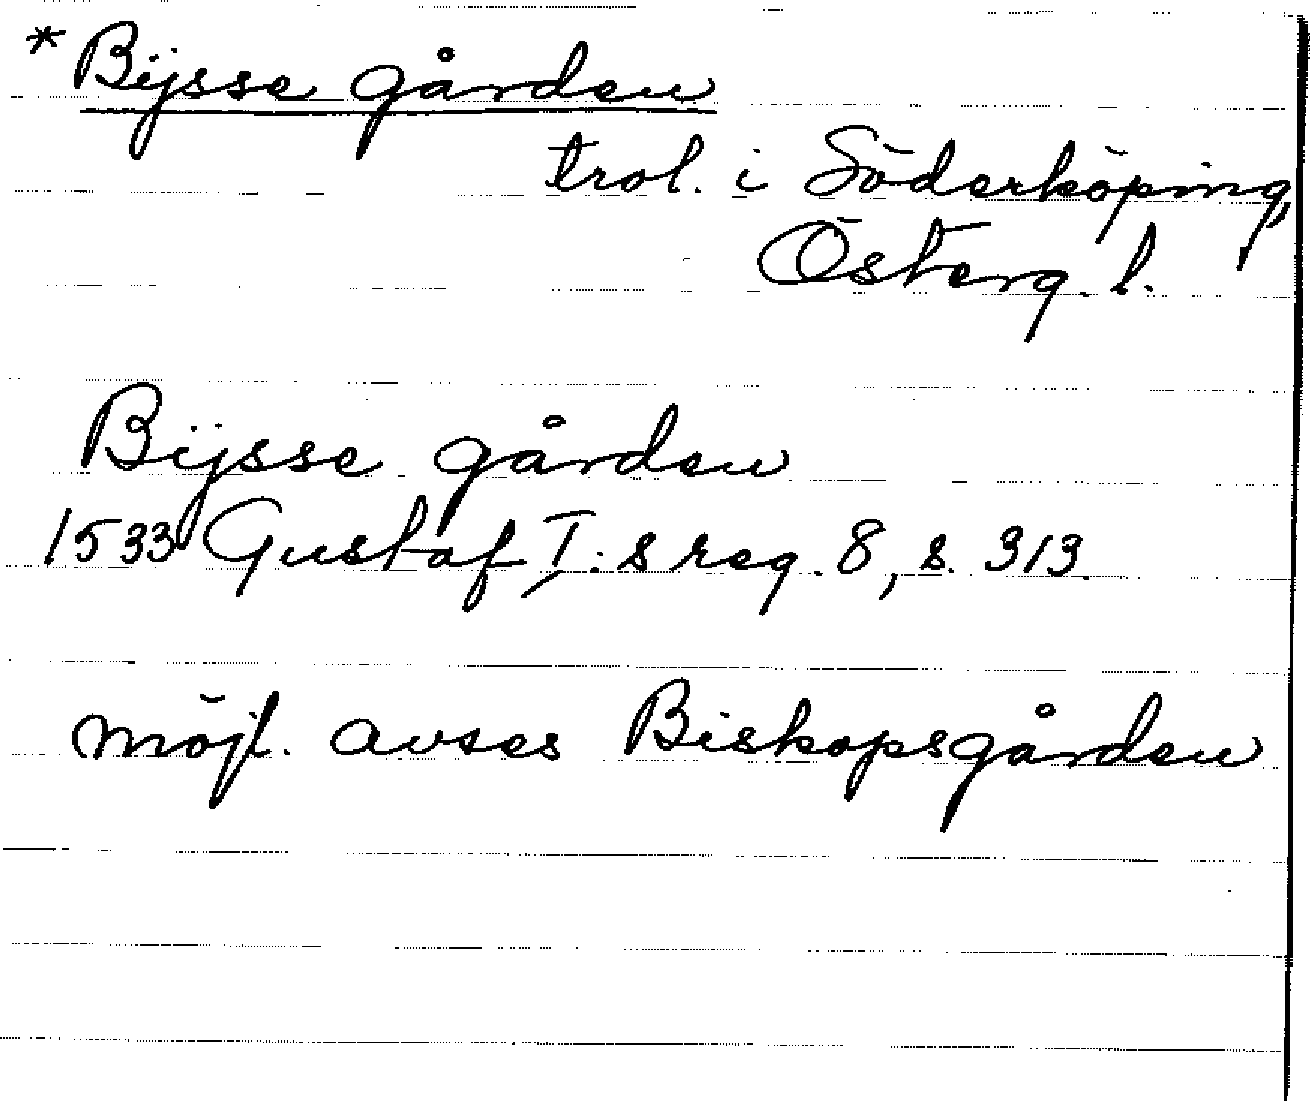 *Bijsse gården
trol. i Söderköping,
Österg. l.
Bijsse gården
1533 Gustaf I:s reg. 8, s. 313.
möjl. avses Biskopsgården